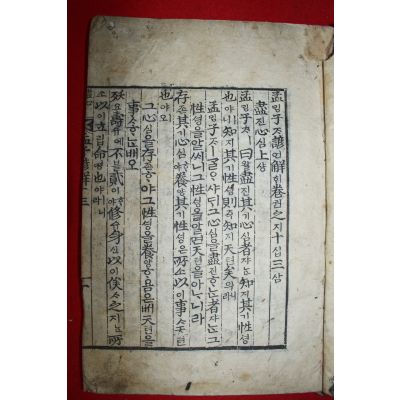 孟ᄆᆡᆼ子ᄌᆞ諺언解ᄒᆡ卷권之지十십三삼
盡진心심上샹
孟ᄆᆡᆼ子ᄌᆞㅣ曰왈盡진其기心심者쟈ᄂᆞᆫ知지其기性셩
也야ㅣ니知지其기性셩則즉知지天텬矣의니라
孟ᄆᆡᆼ子ᄌᆞㅣᄀᆞᆯᄋᆞ샤ᄃᆡ그心심을盡진ᄒᆞᄂᆞᆫ者쟈ᄂᆞᆫ그
性셩을알씨니그性셩을알면天텬을아ᄂᆞ니라
存존其기心심ᄒᆞ야養양其기性셩은所소以이事ᄉᆞ天텬
也야ㅣ오
그心심을存존ᄒᆞ야그性셩을養양홈은ᄡᅥ天텬을
事ᄉᆞᄒᆞᄂᆞᆫ배오
殀요壽슈에不블貳이ᄒᆞ야修슈身신以이俟ᄉᆞ之지ᄂᆞᆫ所
소以이立립命명也야ㅣ니라